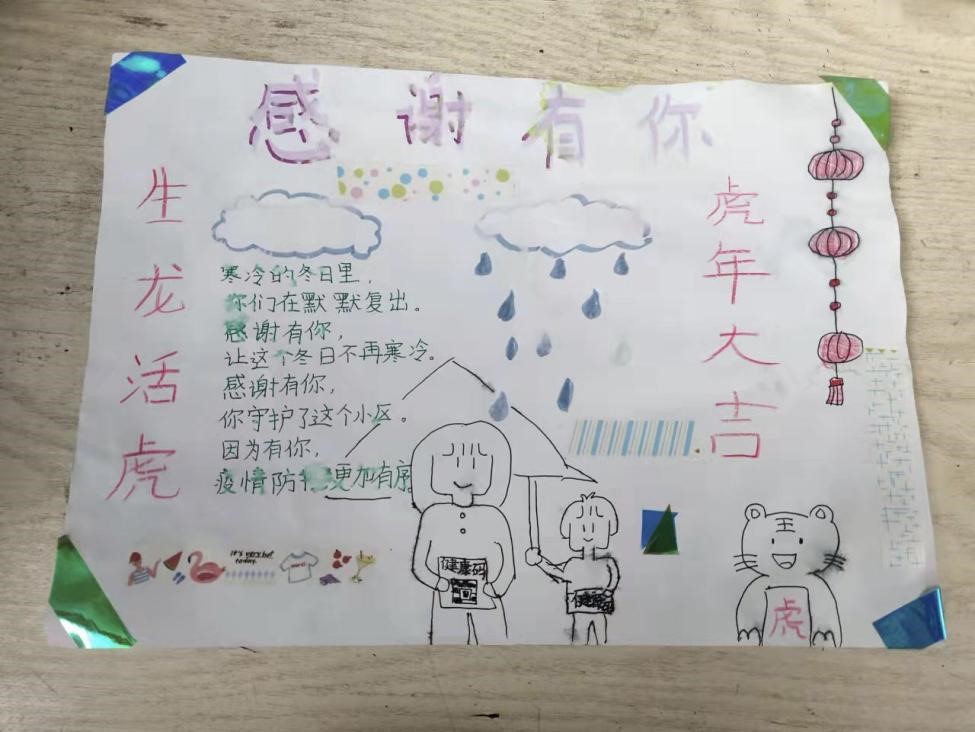 感谢有你
生龙活虎
寒冷的冬日里，
你们在默默复出。
感谢有你，
让这个冬日不再寒冷。
感谢有你，
你守护了这个小区。
因为有你，
疫情防 更加有序
虎年大吉
it's very hot
today.
健康码
健康码
王
虎